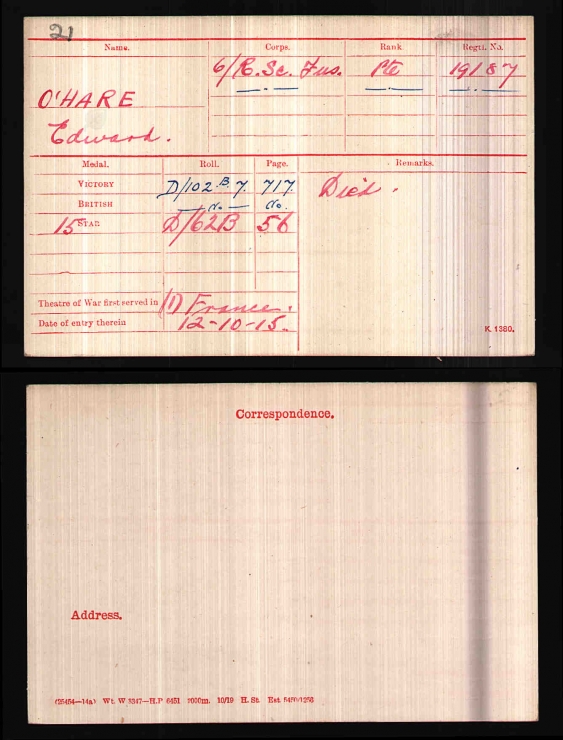 21
Name. Corps. Rank. Regtl. No.
6/R. Sc. Fus. Pte 19187
O'HARE
Edward.
Medal. Roll. Page. Remarks.
VICTORY D/102.B.7. 717. Died.
BRITISH — do — do.
15 STAR D/62B 56
Theatre of War first served in (1) France.
Date of entry therein 12-10-15.
K. 1380.
Correspondence.
Address.
(25454—14a) Wt. W 3347—H.P 6451 7000m. 10/19 H. St. Est